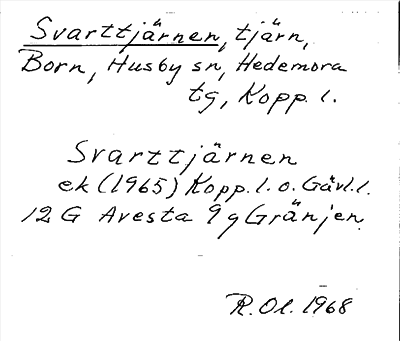 Svarttjärnen, tjärn,
Born, Husby sn, Hedemora
tg, Kopp. l.
Svarttjärnen
ek (1965) Kopp. l. o. Gävl. l.
12 G Avesta 9 g Gränjen.
R. Ol. 1968